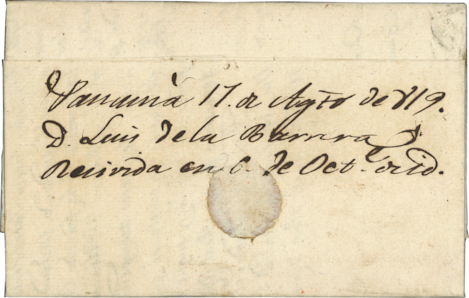 Panamá 17. de Agto de 819.
D. Luis de la Barrera
Recivida en 6. de Oct.e de id.